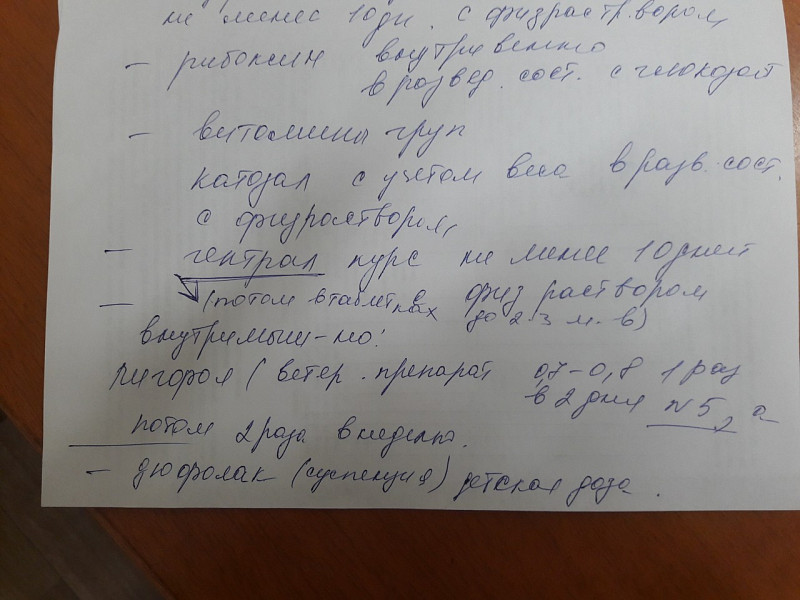 не менее 10 дн. с физраствором,
– рибоксин внутривенно
в развед. сост. с глюкозой
– витамины груп
катозал с учетом веса в разв. сост.
с физраствором,
– гептрал курс не менее 10 дней
– (потом в таблетках с физ раствором
до 2-3 м-в)
внутримыш-но:
(ветер. препарат 0,7-0,8 1 раз
в 2 дня №5, а
потом 2 раза в неделю.
– дюфолак (суспенция) детская доза.